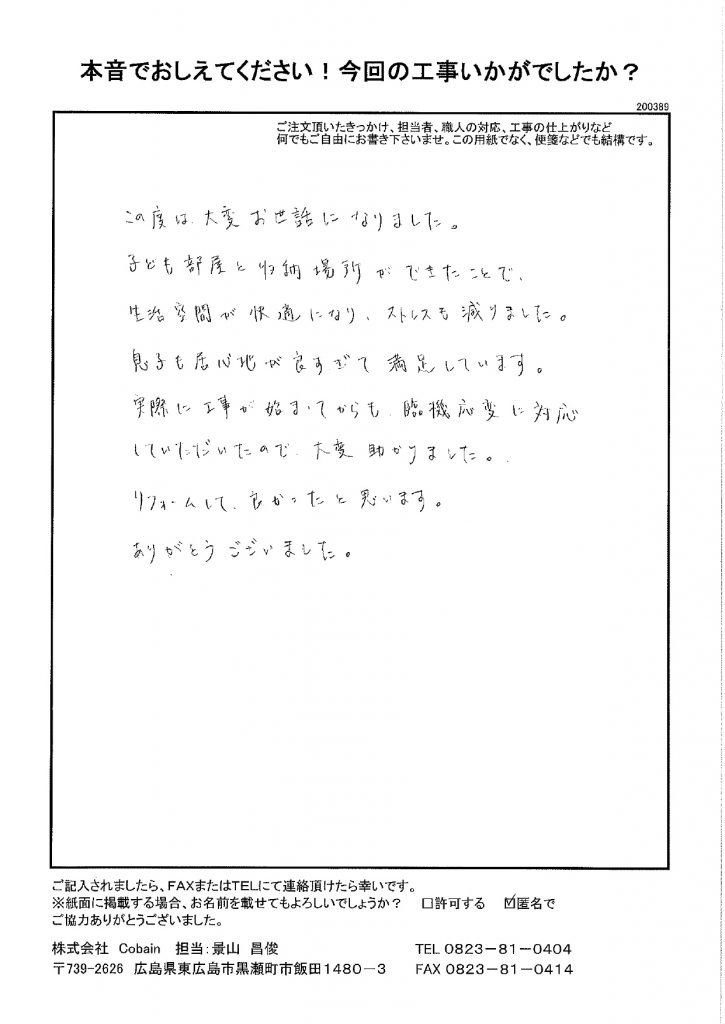 本音でおしえてください！今回の工事いかがでしたか？
200389
ご注文頂いたきっかけ、担当者、職人の対応、工事の仕上がりなど
何でもご自由にお書き下さいませ。この用紙でなく、便箋などでも結構です。
この度は、大変お世話になりました。
子ども部屋と収納場所ができたことで、
生活空間が快適になり、ストレスも減りました。
息子も居心地が良すぎて満足しています。
実際に工事が始まってからも、臨機応変に対応
していただいたので、大変助かりました。
リフォームして、良かったと思います。
ありがとうございました。
ご記入されましたら、FAXまたはTELにて連絡頂けたら幸いです。
※紙面に掲載する場合、お名前を載せてもよろしいでしょうか？　□許可する　☑匿名で
ご協力ありがとうございました。
株式会社　Cobain　担当：景山　昌俊　TEL 0823－81－0404
〒739-2626　広島県東広島市黒瀬町市飯田1480－3　FAX 0823－81－0414